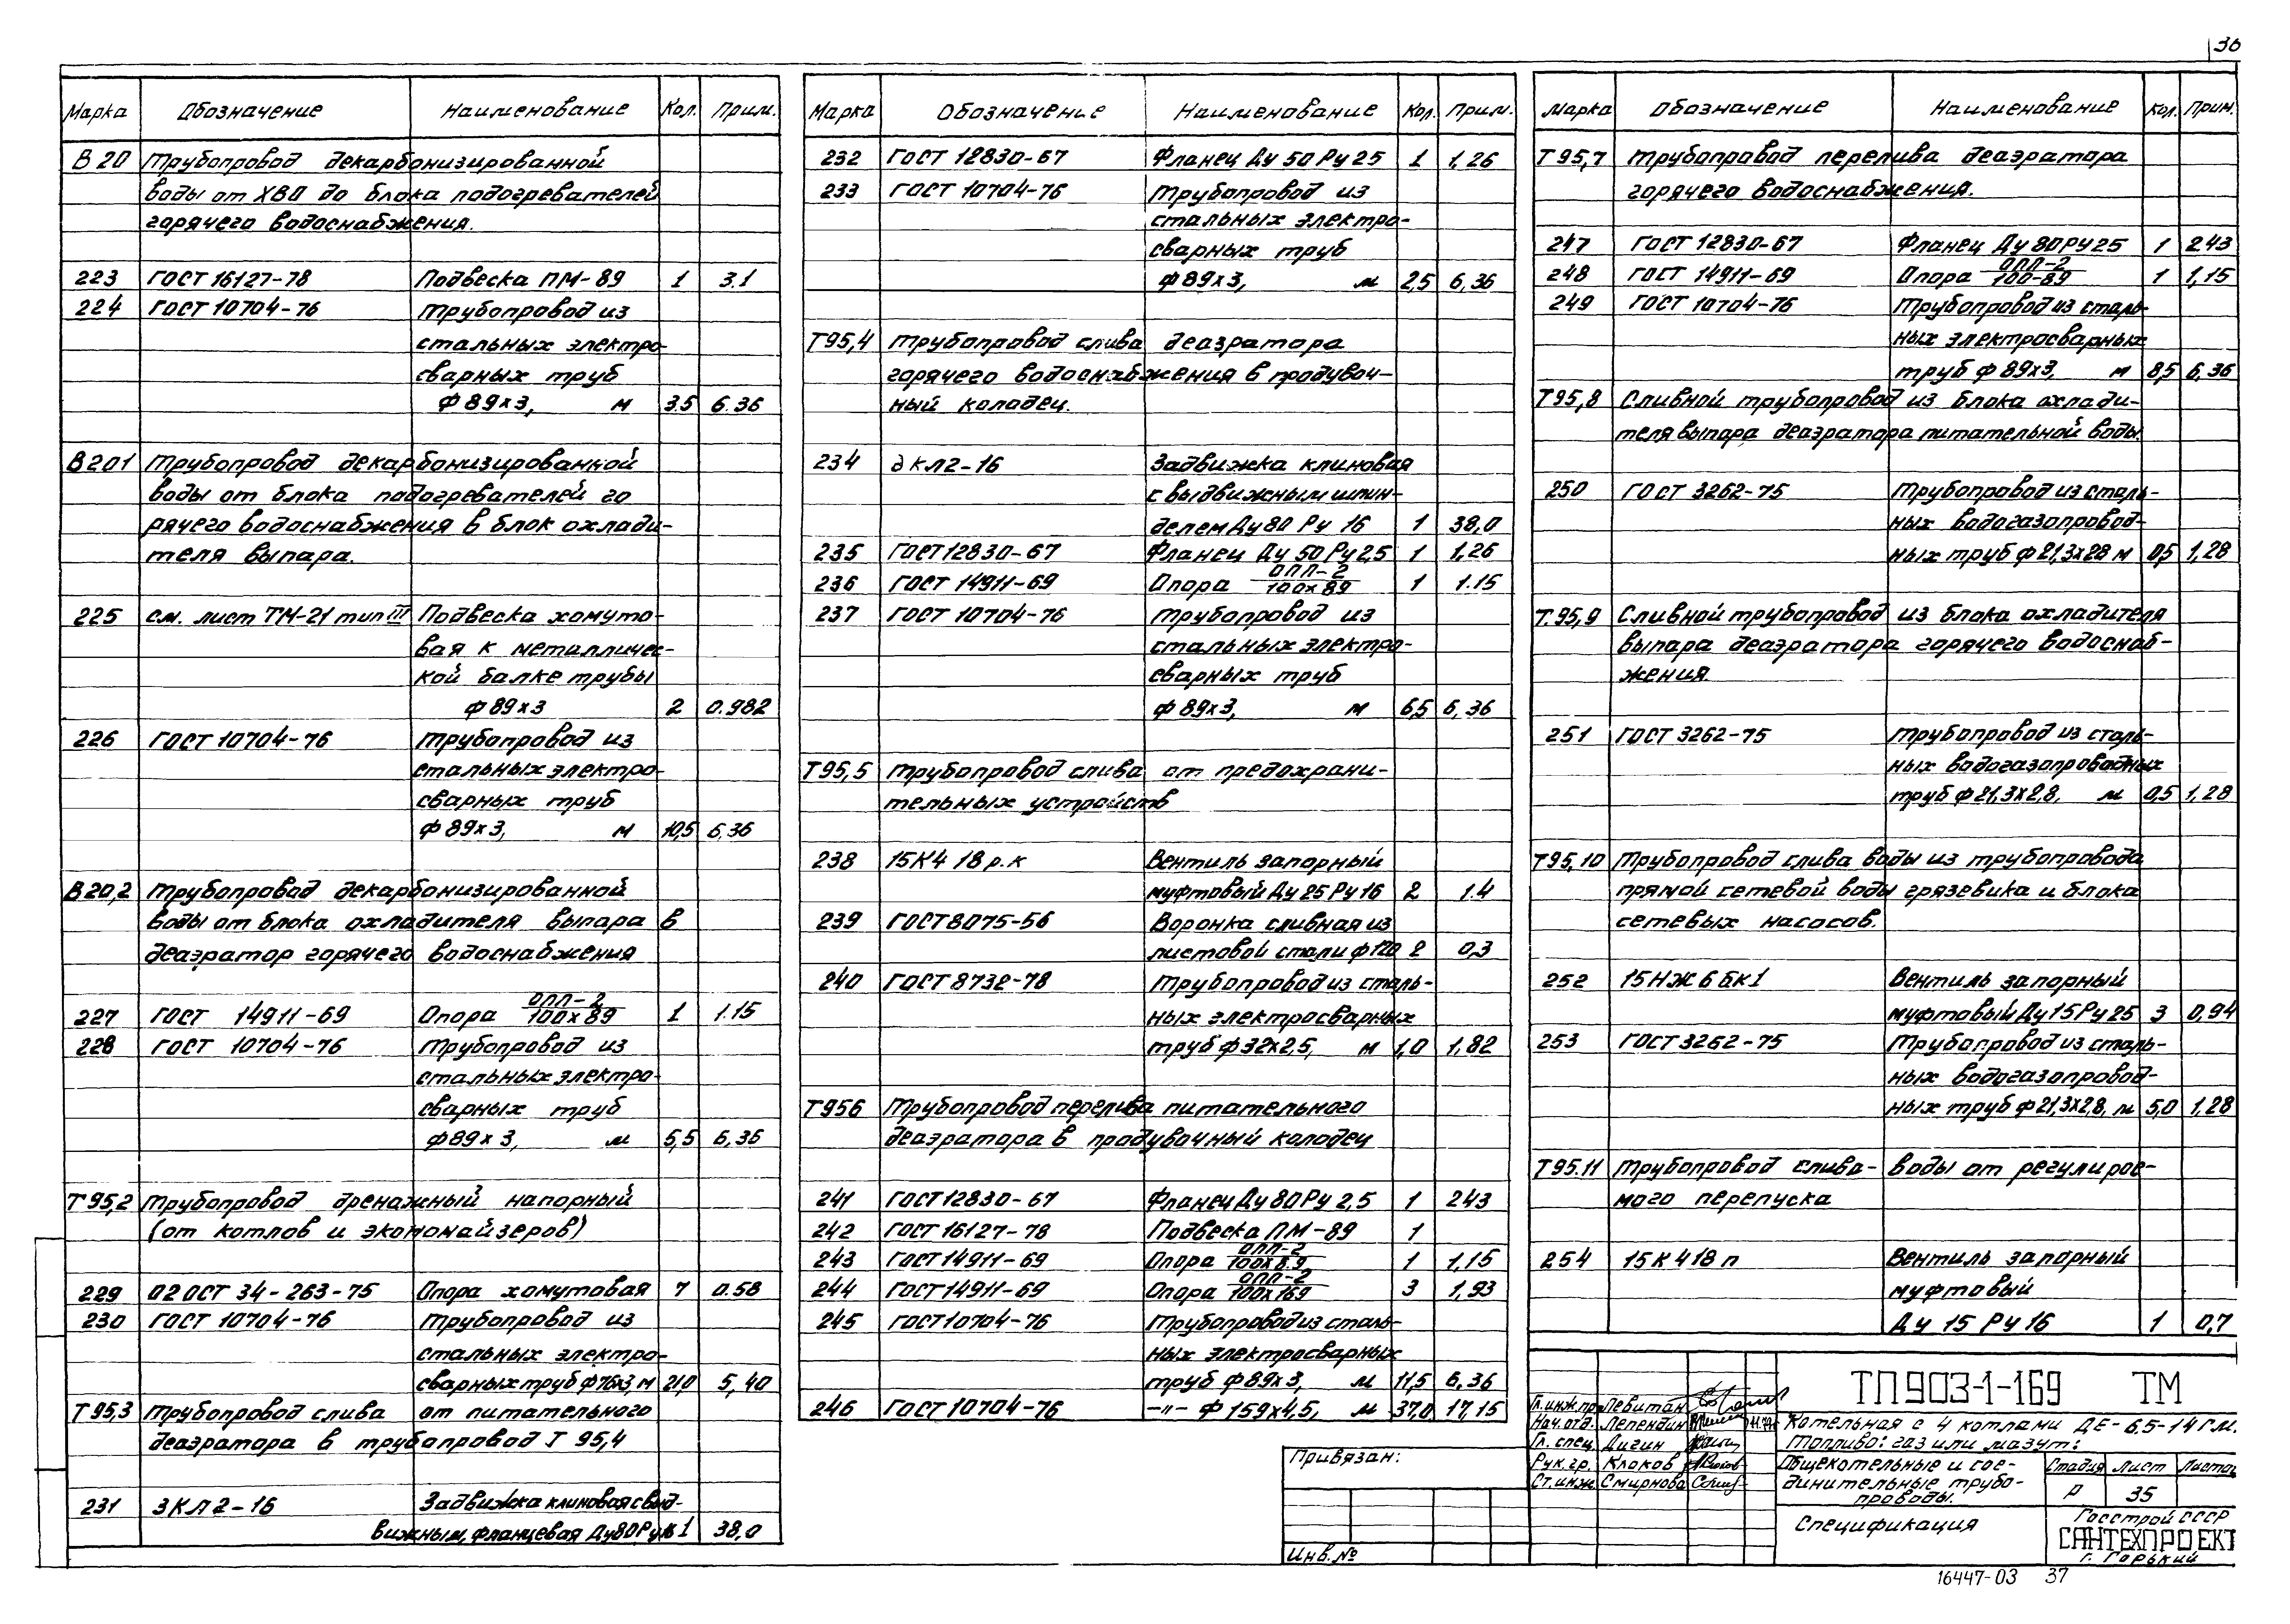 36
Марка Обозначение Наименование Кол. Прим.
В 20 Трубопровод декарбонизированной
воды от ХВО до блока подогревателей
горячего водоснабжения.
223 ГОСТ 16127-78 Подвеска ПМ-89 1 3.1
224 ГОСТ 10704-76 Трубопровод из
стальных электро-
сварных труб
ф 89х3, м 3.5 6.36
В 20.1 Трубопровод декарбонизированной
воды от блока подогревателей го
рячего водоснабжения в блок охлади-
теля выпара.
225 см. лист ТМ-21 тип III Подвеска хомуто-
вая к металличес-
кой балке трубы
ф 89х3 2 0.982
226 ГОСТ 10704-76 Трубопровод из
стальных электро-
сварных труб
ф 89х3, м 10,5 6.36
В 20,2 Трубопровод декарбонизированной
воды от блока охладителя выпара в
деаэратор горячего водоснабжения
227 ГОСТ 14911-69 Опора ОПП-2/100х89 1 1.15
228 ГОСТ 10704-76 Трубопровод из
стальных электро-
сварных труб
ф 89х3, м 5,5 6,36
Т 95,2 Трубопровод дренажный напорный
(от котлов и экономайзеров)
229 02 ОСТ 34-263-75 Опора хомутовая 7 0.58
230 ГОСТ 10704-76 Трубопровод из
стальных электро-
сварных труб ф76х3, м 21,0 5,40
Т 95,3 Трубопровод слива от питательного
деаэратора в трубопровод Т 95,4
231 ЗКЛ 2-16 Задвижка клиновая с выд-
вижным, фланцевая Ду80 Ру16 1 38,0
Марка Обозначение Наименование Кол. Прим.
232 ГОСТ 12830-67 Фланец Ду 50 Ру 25 1 1,26
233 ГОСТ 10704-76 Трубопровод из
стальных электро-
сварных труб
ф 89х3, м 2,5 6,36
Т95,4 Трубопровод слива деаэратора
горячего водоснабжения в продувоч-
ный колодец.
234 ЗКЛ2-16 Задвижка клиновая
с выдвижным шпин-
делем Ду80 Ру 16 1 38,0
235 ГОСТ 12830-67 Фланец Ду 50 Ру 2,5 1 1,26
236 ГОСТ 14911-69 Опора ОПП-2/100х89 1 1.15
237 ГОСТ 10704-76 Трубопровод из
стальных электро-
сварных труб
ф 89х3, м 6,5 6,36
Т95,5 Трубопровод слива от предохрани-
тельных устройств
238 15К4 18 р.к Вентиль запорный
муфтовый Ду 25 Ру 16 2 1.4
239 ГОСТ 8075-56 Воронка сливная из
листовой стали ф120 2 0,3
240 ГОСТ 8732-78 Трубопровод из сталь-
ных электросварных
труб ф 32х2,5, м 1,0 1,82
Т956 Трубопровод перелива питательного
деаэратора в продувочный колодец
241 ГОСТ 12830-67 Фланец Ду 80 Ру 2,5 1 243
242 ГОСТ 16127-78 Подвеска ПМ-89 1
243 ГОСТ 14911-69 Опора ОПП-2/100х8.9 1 1,15
244 ГОСТ 14911-69 Опора ОПП-2/100х169 3 1,93
245 ГОСТ 10704-76 Трубопровод из сталь-
ных электросварных
труб ф 89х3, м 11,5 6,36
246 ГОСТ 10704-76 -"- ф 159х4,5, м 37,0 17,15
Марка Обозначение Наименование Кол. Прим.
Т 95,7 Трубопровод перелива деаэратора
горячего водоснабжения.
247 ГОСТ 12830-67 Фланец Ду 80 Ру 25 1 243
248 ГОСТ 14911-69 Опора ОПП-2/100-89 1 1,15
249 ГОСТ 10704-76 Трубопровод из сталь-
ных электросварных
труб ф 89х3, м 8,5 6,36
Т 95,8 Сливной трубопровод из блока охлади-
теля выпара деаэратора питательной воды.
250 ГОСТ 3262-75 Трубопровод из сталь-
ных водогазопровод-
ных труб ф 21,3х28 м 0,5 1,28
Т.95,9 Сливной трубопровод из блока охладителя
выпара деаэратора горячего водоснаб-
жения.
251 ГОСТ 3262-75 Трубопровод из сталь-
ных водогазопроводных
труб ф 21,3х2,8, м 0,5 1,28
Т95,10 Трубопровод слива воды из трубопровода
прямой сетевой воды грязевика и блока
сетевых насосов.
252 15НЖ 6 бк1 Вентиль запорный
муфтовый Ду 15 Ру 25 3 0,94
253 ГОСТ 3262-75 Трубопровод из сталь-
ных водогазопровод-
ных труб ф 21,3х2,8, м 5,0 1,28
Т95.11 Трубопровод слива- воды от регулируе-
мого перепуска
254 15К 4 18 п Вентиль запорный
муфтовый
Ду 15 Ру 16 1 0,7
Привязан:
Инв.№
Гл.инж.пр Левитан
Нач.отд. Лепендин
Гл. спец. Дигин
Рук.гр. Клоков
Ст.инж. Смирнова
ТП 903-1-169 ТМ
Котельная с 4 котлами ДЕ-6,5-14 ГМ.
Топливо: газ или мазут:
Общекотельные и сое-
динительные трубо-
проводы.
Стадия Лист Листов
Р 35
Спецификация
Госстрой СССР
САНТЕХПРОЕКТ
г. Горький
16447-03 37